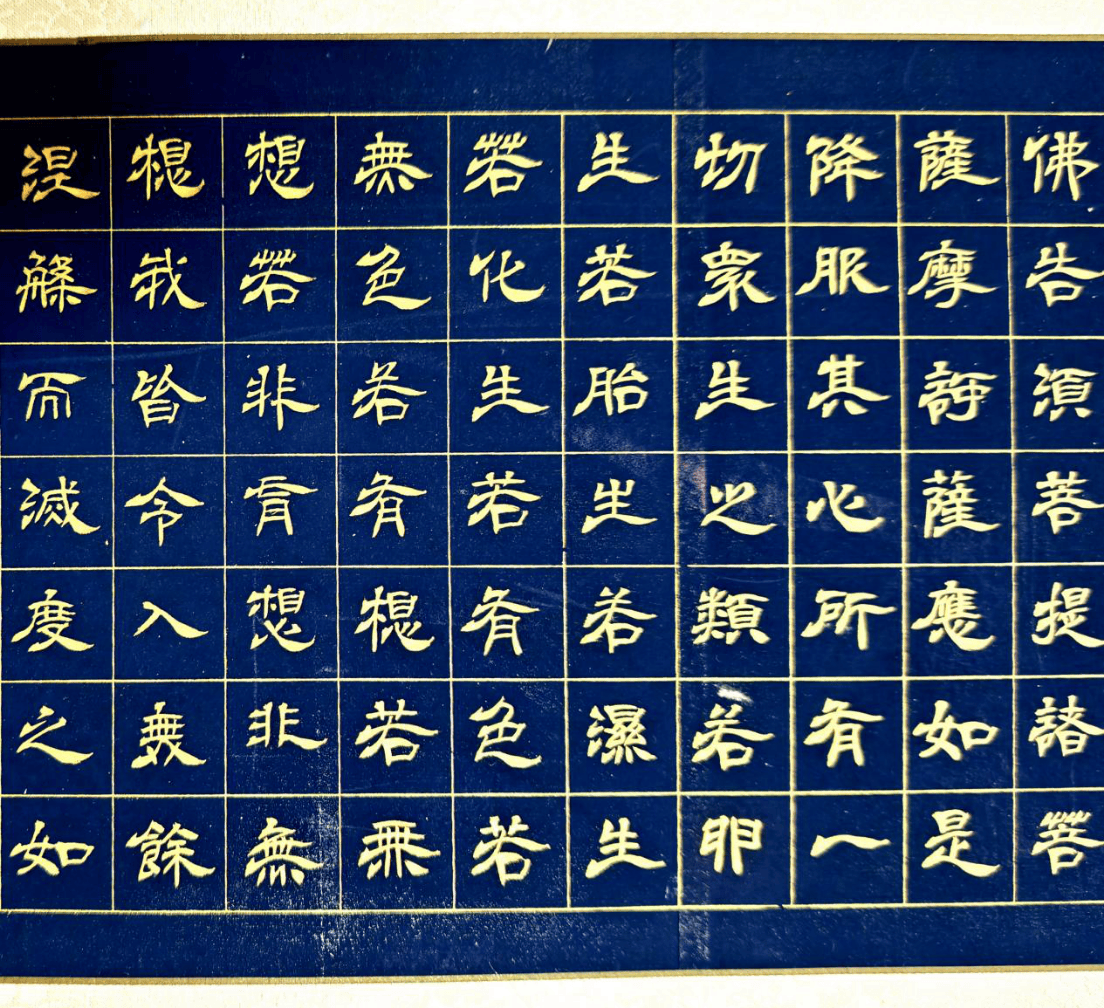 佛告須菩提諸菩
薩摩訶薩應如是
降服其心所有一
切衆生之類若卵
生若胎生若濕生
若化生若有色若
無色若有想若無
想若非有想非無
想我皆令入無餘
涅槃而滅度之如